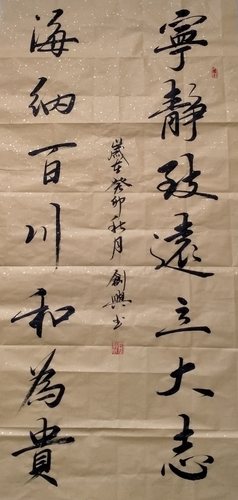 寧靜致遠立大志
海納百川和為貴
歲在癸卯秋月創興书